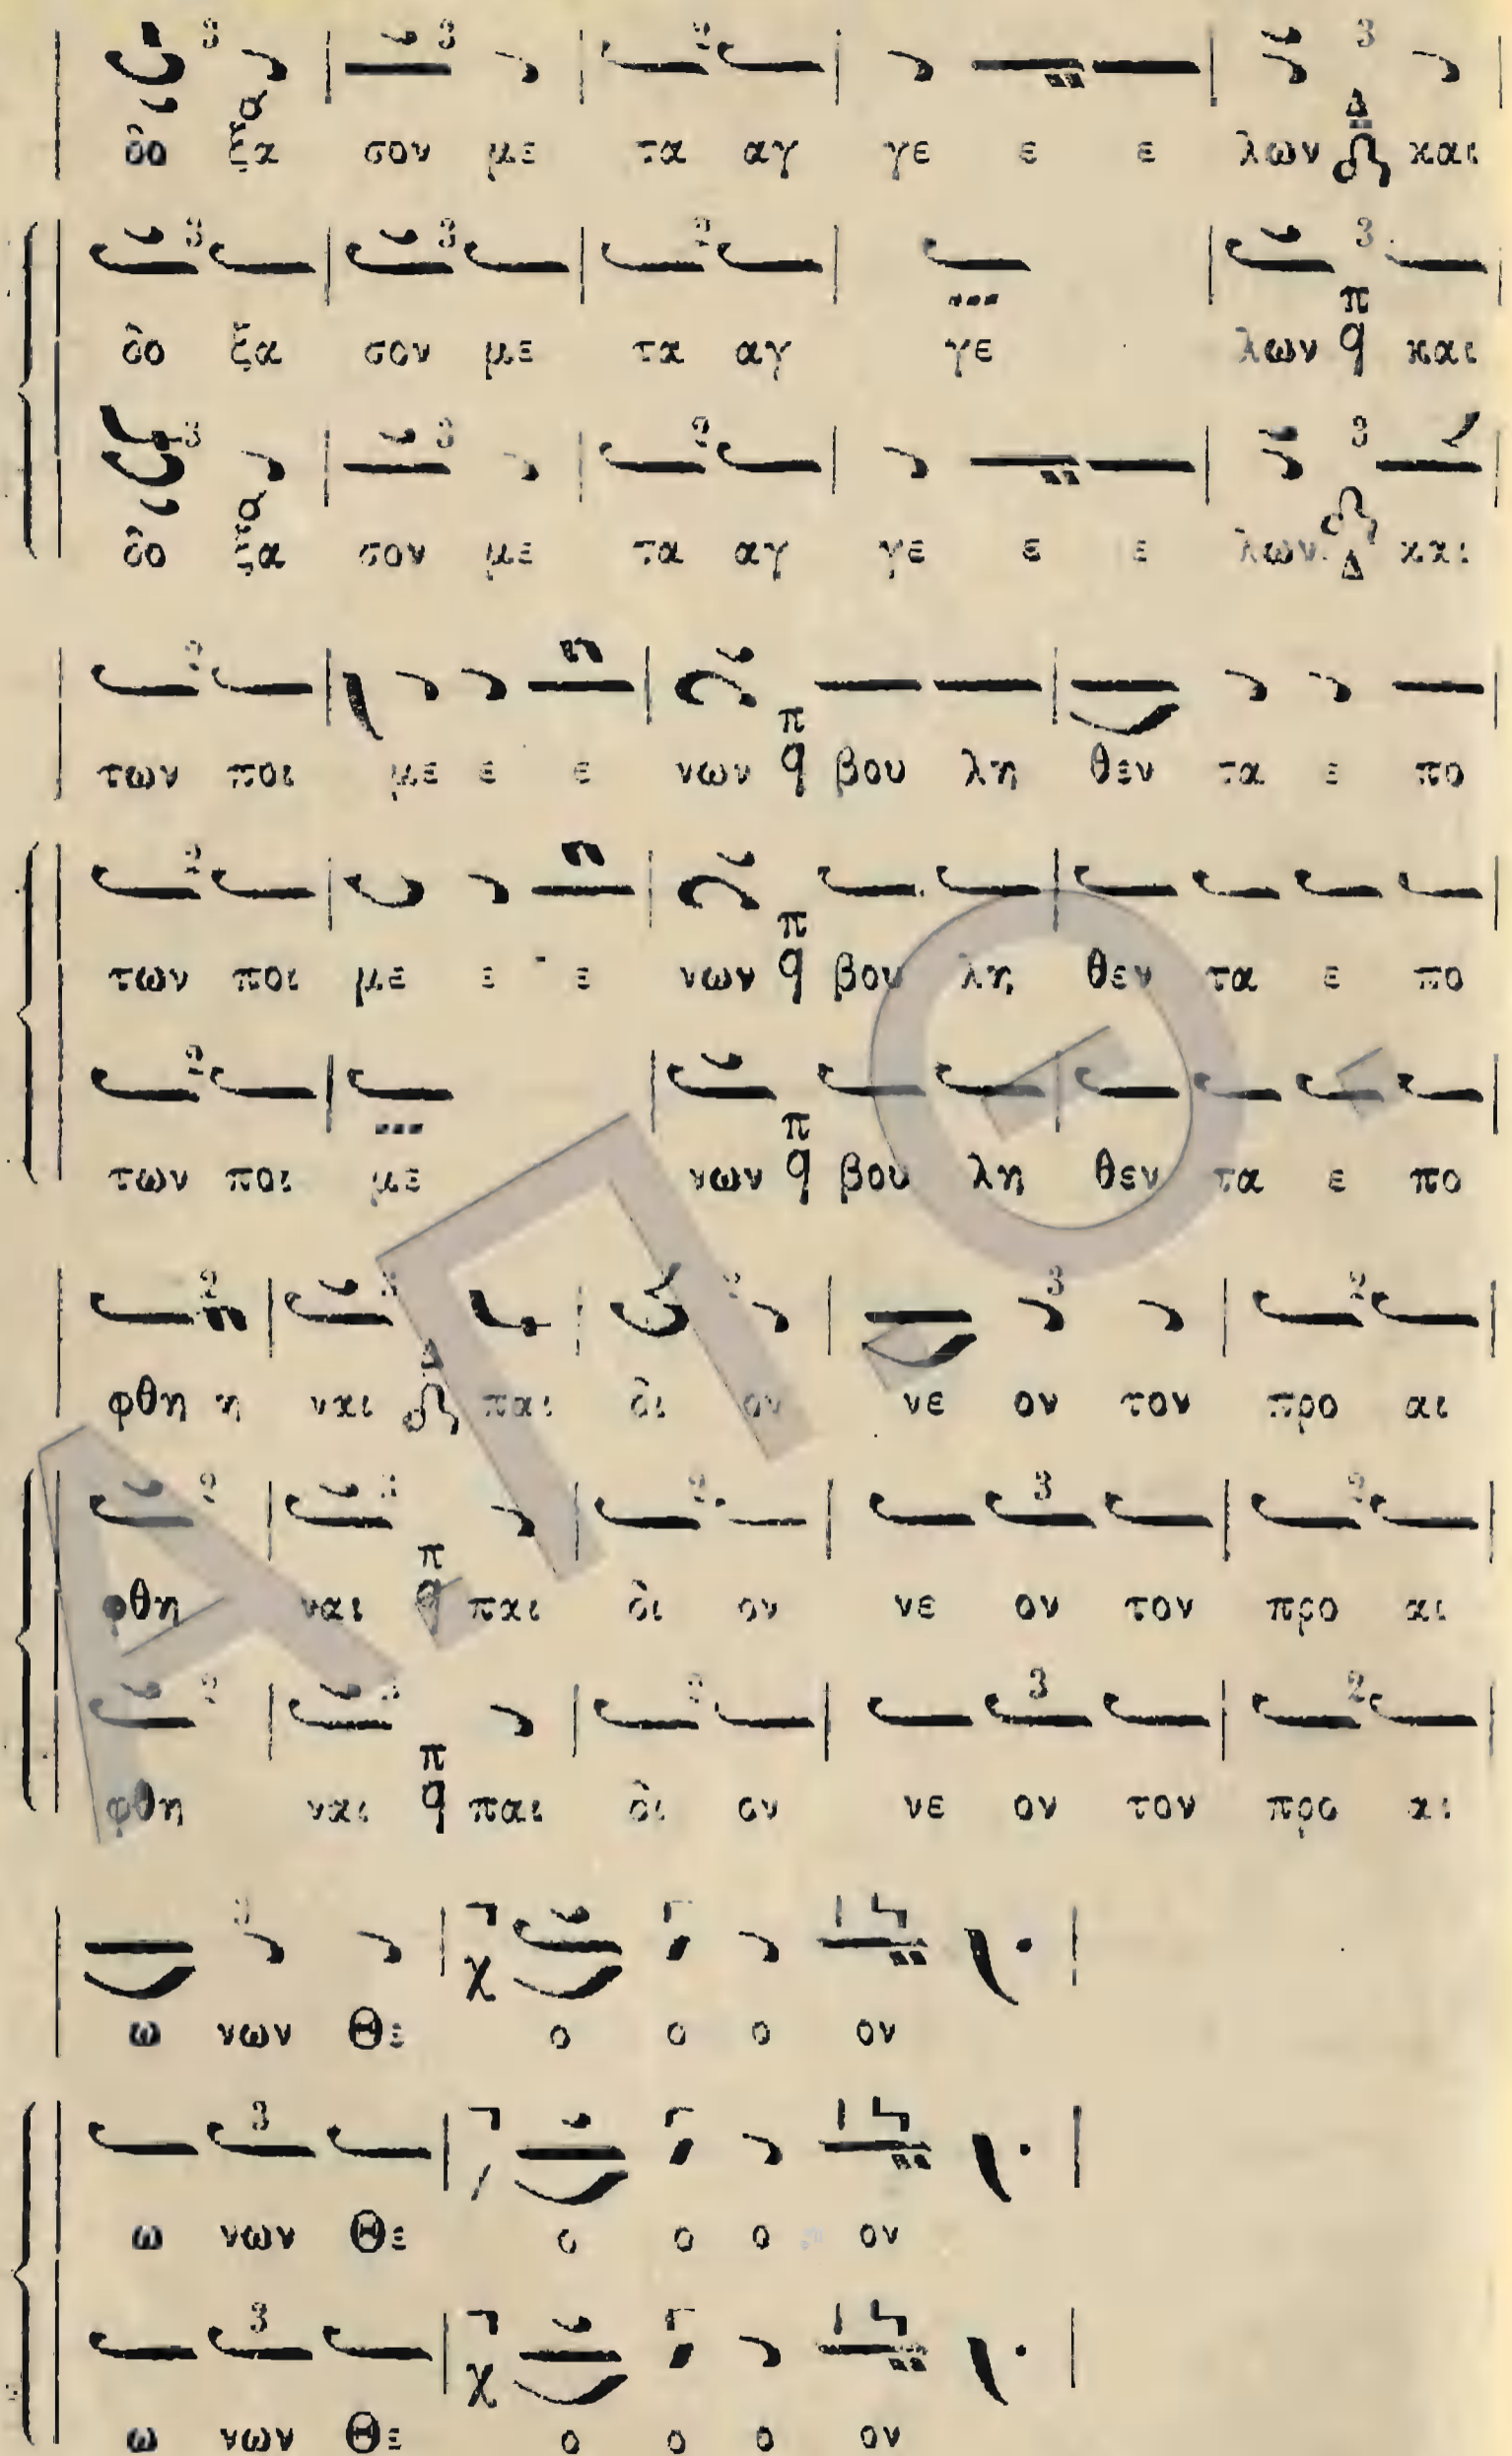 δο ξα σον με τα αγ γε ε ε λων και
δο ξα σον με τα αγ γε λων και
δο ξα σον με τα αγ γε ε ε λων και
των ποι με ε ε νων βου λη θεν τα ε πο
των ποι με ε ε νων βου λη θεν τα ε πο
των ποι με νων βου λη θεν τα ε πο
φθη η ναι παι δι ον νε ον τον προ αι
φθη ναι παι δι ον νε ον τον προ αι
φθη ναι παι δι ον νε ον τον προ αι
ω νων Θε ο ο ο ον
ω νων Θε ο ο ο ον
ω νων Θε ο ο ο ον